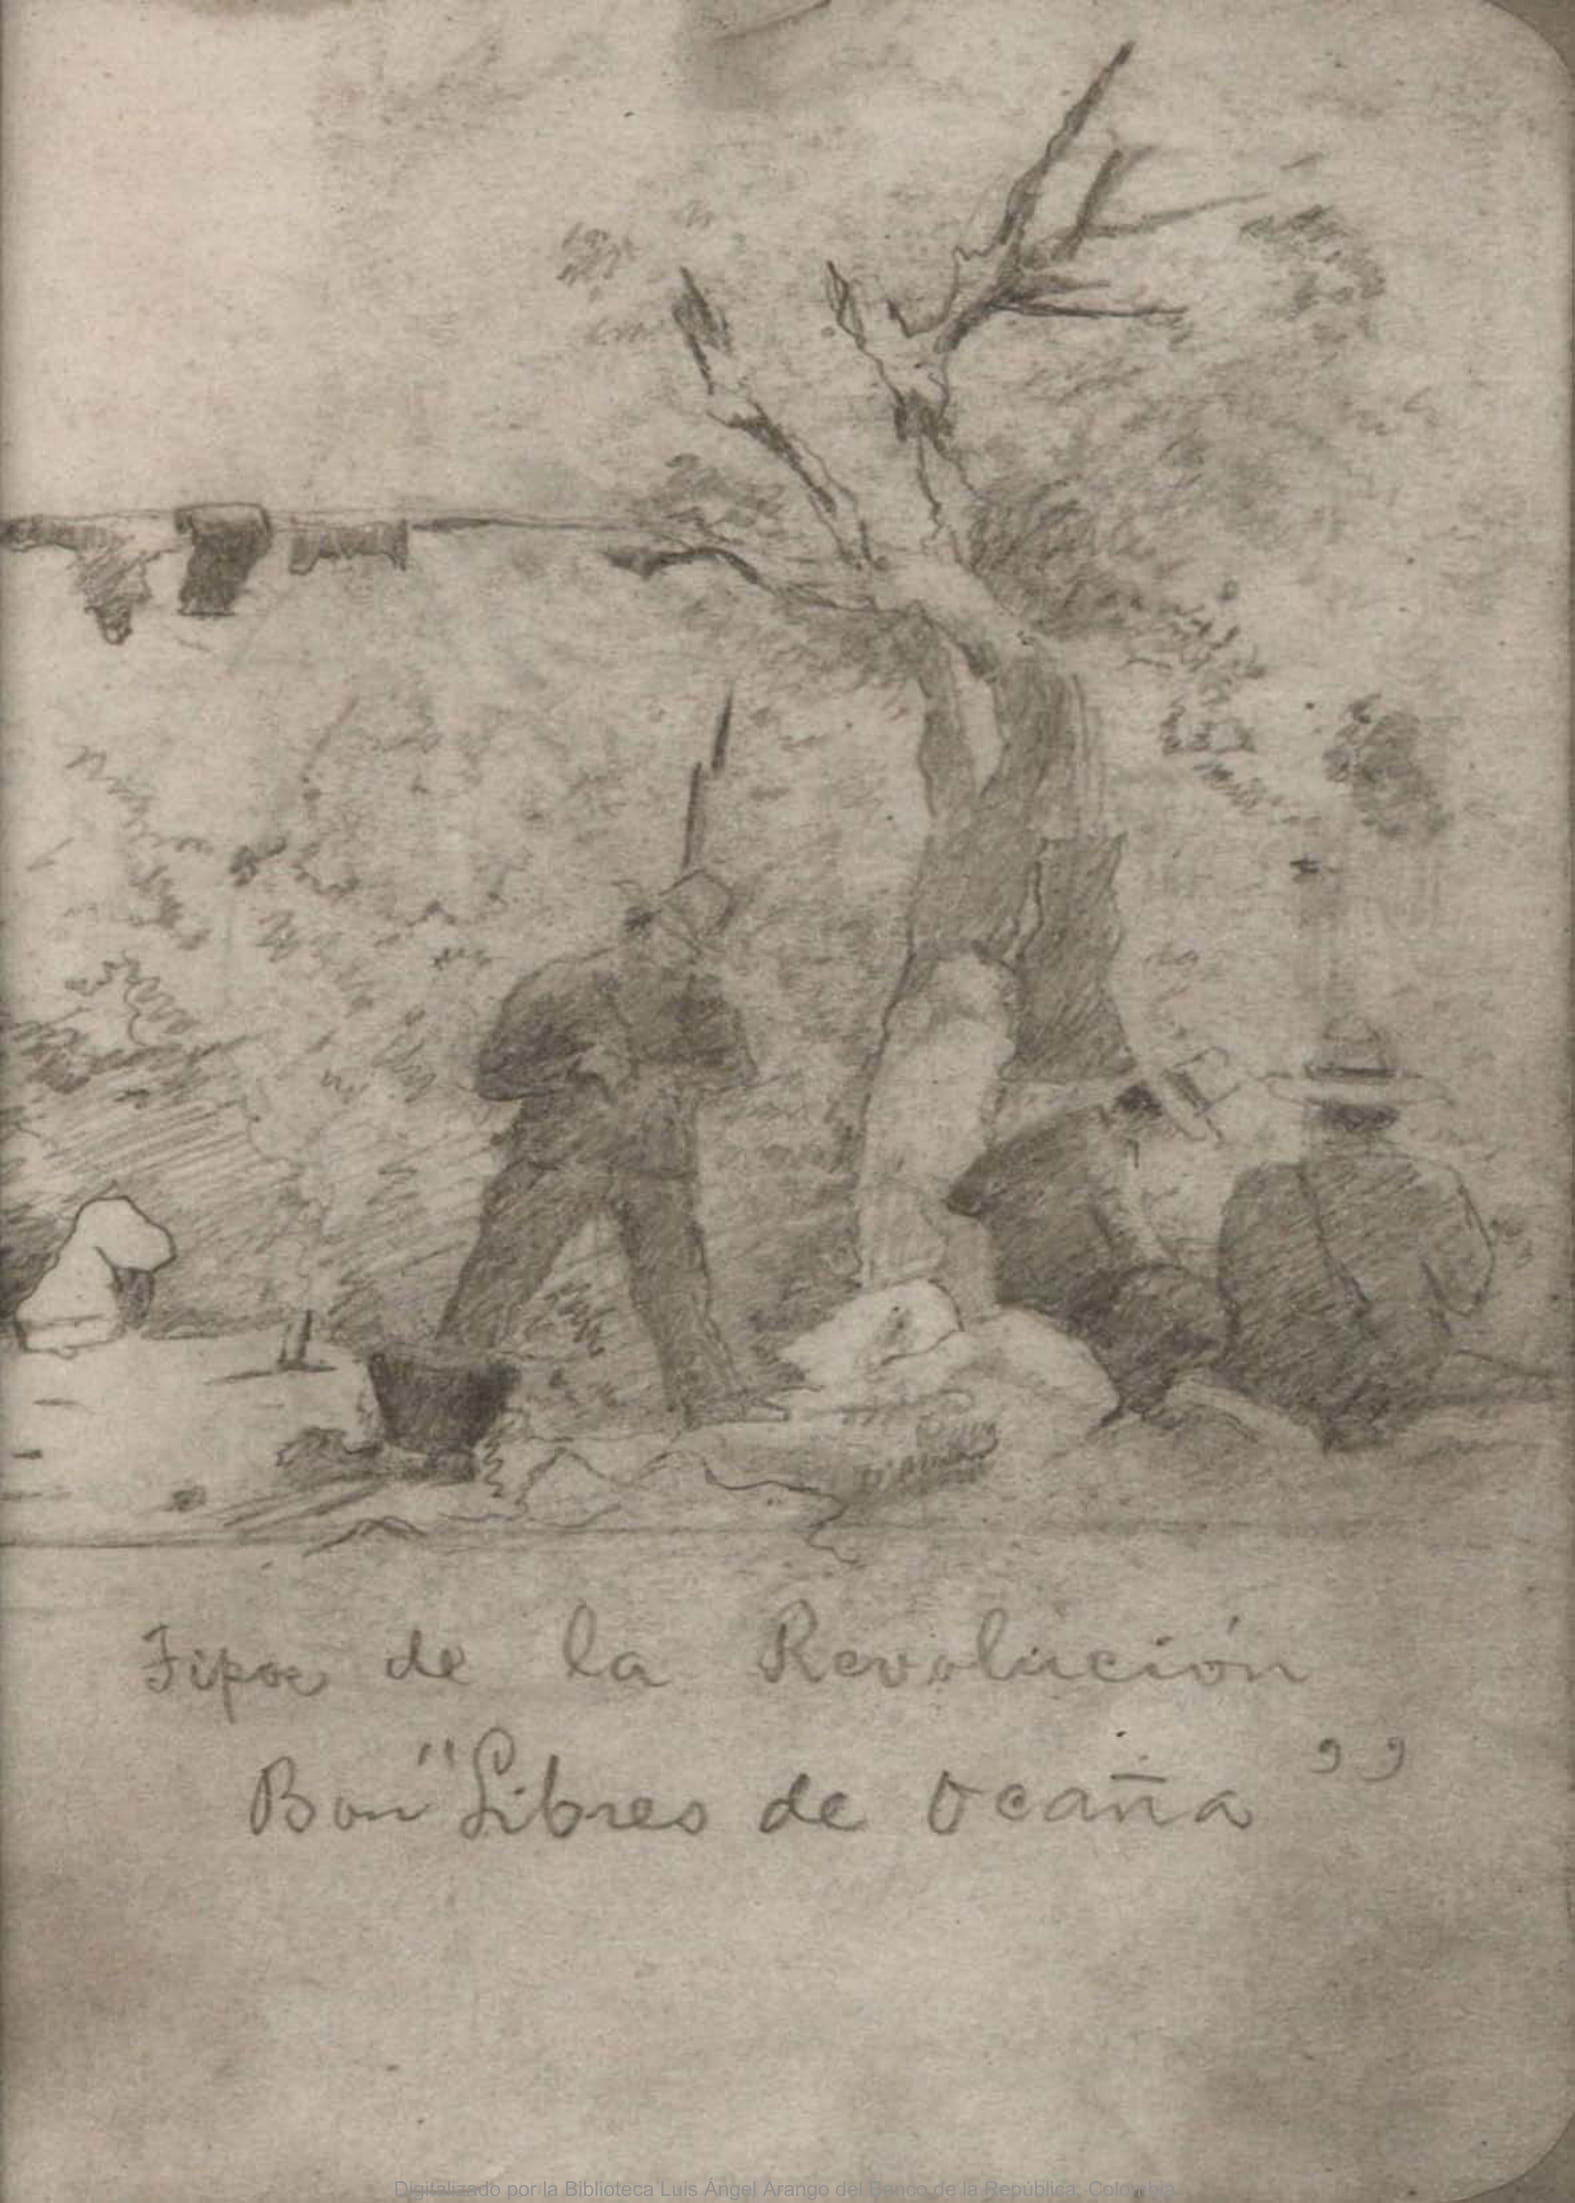 Tipos de la Revolución
Bon "Libres de Ocaña"
Digitalizado por la Biblioteca Luis Ángel Arango del Banco de la República, Colombia